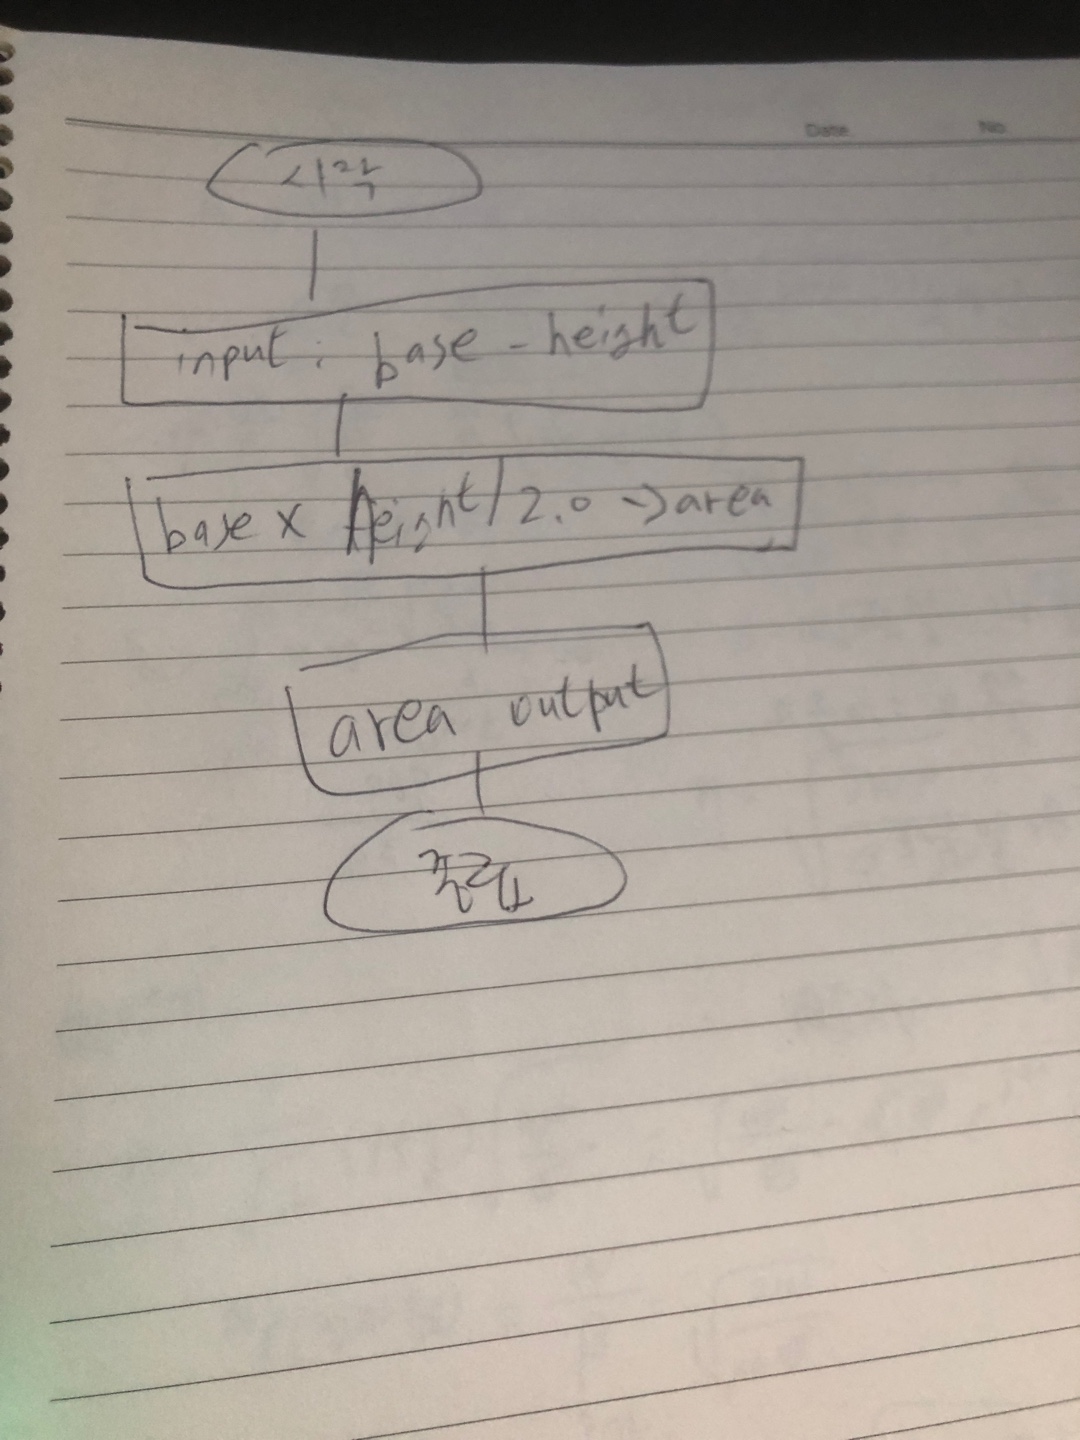 Date No
시작
input : base - height
base x height / 2.0 → area
area output
종료